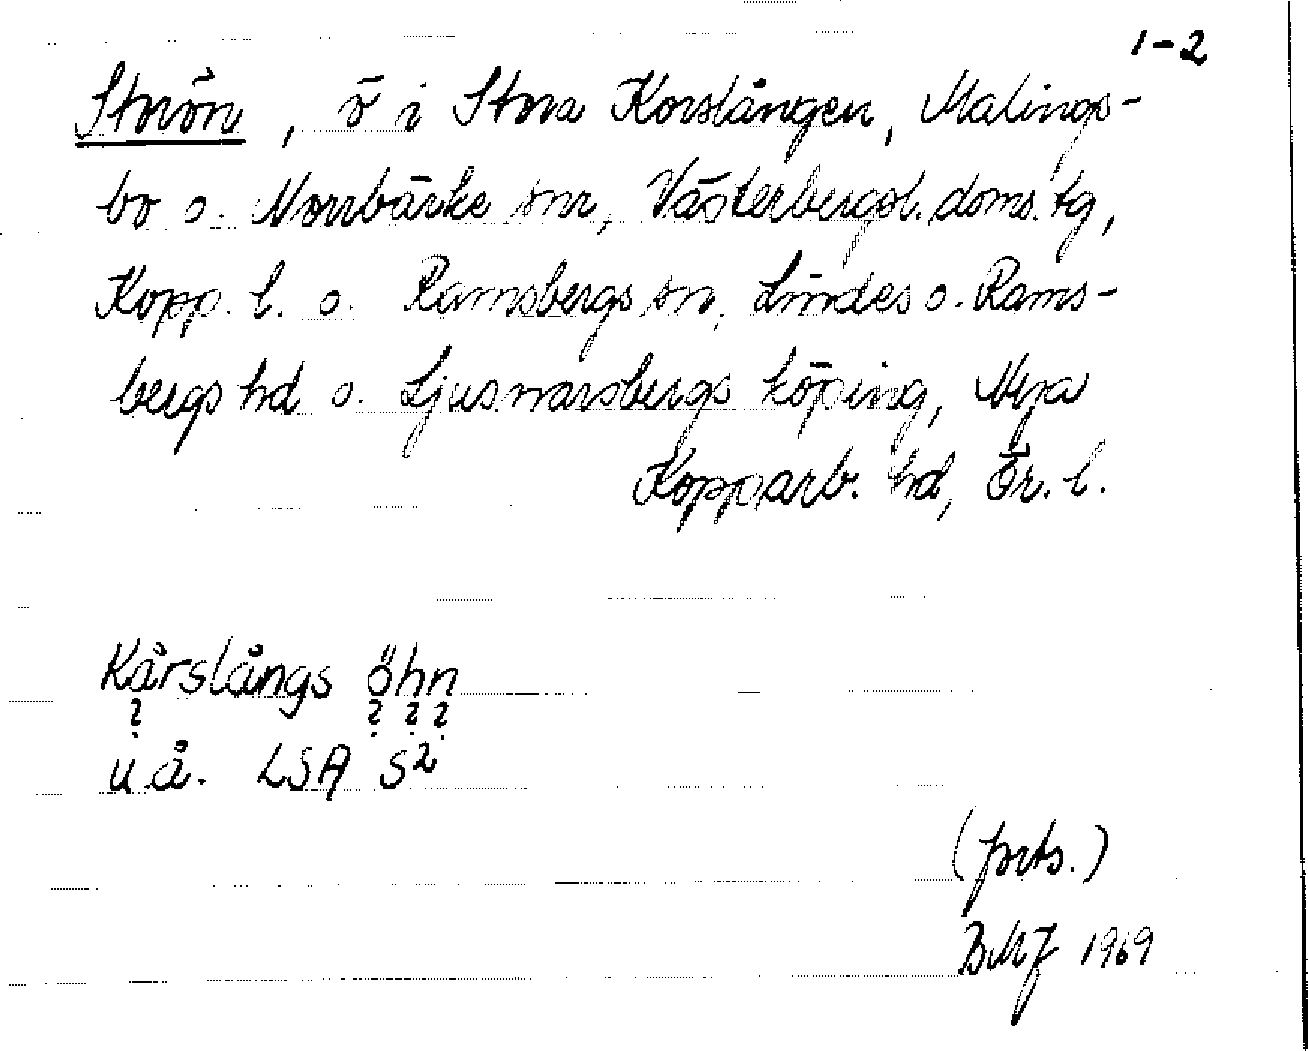 1-2
Storön, ö i Stora Korslången, Malings-
bo o. Norrbärke snr, Västerbergsl. doms. tg,
Kopp. l. o. Ramsbergs sn, Lindes o. Rams-
bergs hd o. Ljusnarsbergs köping, Nya
Kopparb. hd, Ör. l.
Kårslångs öhn
? ? ? ?
u å. LSA S2
(forts.)
BMJ 1969